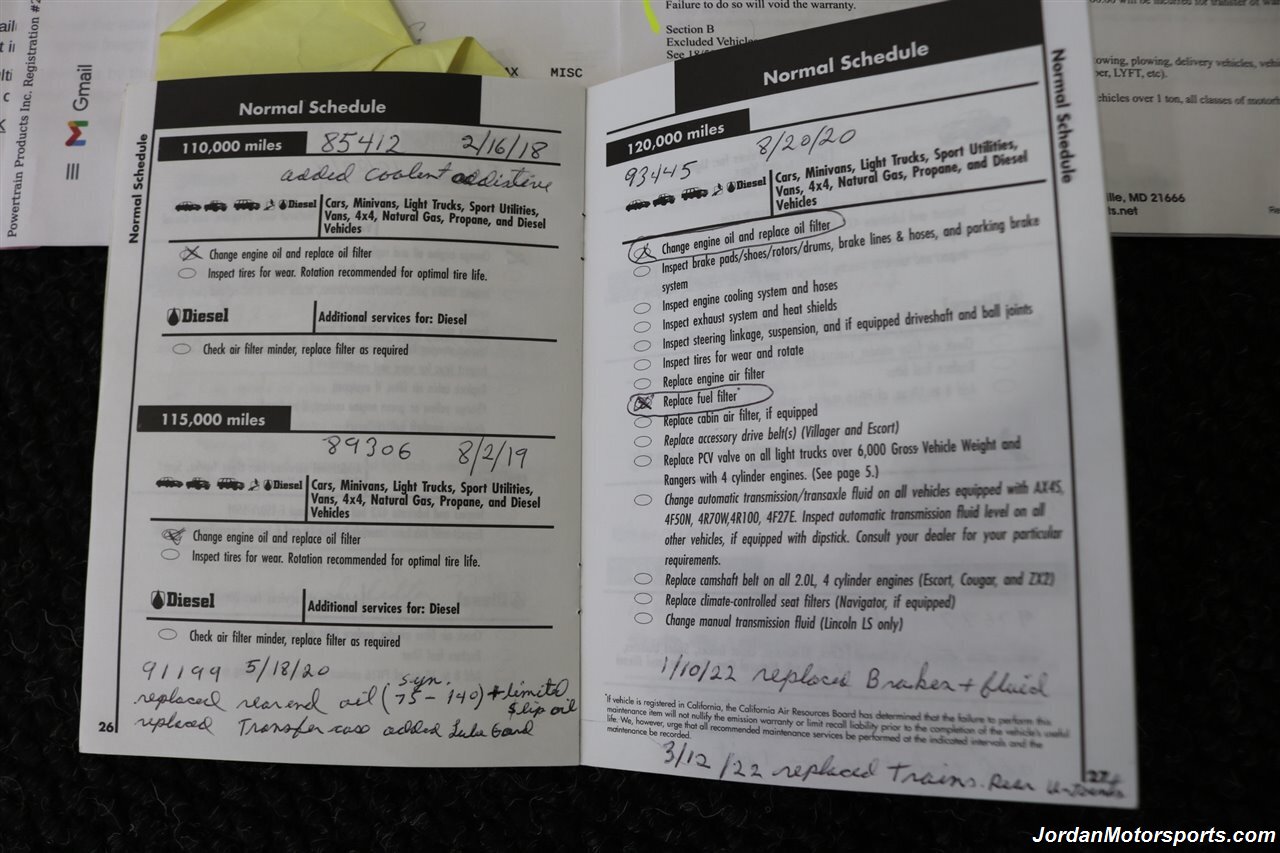 Powertrain Products Inc. Registration #2
Gmail
MISC
Failure to do so will void the warranty.
Section B
Excluded Vehicle
owing, plowing, delivery vehicles, vehi
er, LYFT, etc).
ehicles over 1 ton, all classes of motorh
ille, MD 21666
ts.net
Normal Schedule
Normal Schedule
110,000 miles 85412 2/16/18
added coolent addistive
Diesel
Cars, Minivans, Light Trucks, Sport Utilities,
Vans, 4x4, Natural Gas, Propane, and Diesel
Vehicles
Change engine oil and replace oil filter
Inspect tires for wear. Rotation recommended for optimal tire life.
Diesel Additional services for: Diesel
Check air filter minder, replace filter as required
115,000 miles
89306 8/2/19
Diesel
Cars, Minivans, Light Trucks, Sport Utilities,
Vans, 4x4, Natural Gas, Propane, and Diesel
Vehicles
Change engine oil and replace oil filter
Inspect tires for wear. Rotation recommended for optimal tire life.
Diesel Additional services for: Diesel
Check air filter minder, replace filter as required
91199 5/18/20
syn.
replaced rearend oil (75-140) + limited
slip oil
replaced Transfer case added Lube Gard
26
Normal Schedule
Normal Schedule
120,000 miles 8/20/20
93445
Diesel
Cars, Minivans, Light Trucks, Sport Utilities,
Vans, 4x4, Natural Gas, Propane, and Diesel
Vehicles
Change engine oil and replace oil filter
Inspect brake pads/shoes/rotors/drums, brake lines & hoses, and parking brake
system
Inspect engine cooling system and hoses
Inspect exhaust system and heat shields
Inspect steering linkage, suspension, and if equipped driveshaft and ball joints
Inspect tires for wear and rotate
Replace engine air filter
Replace fuel filter*
Replace cabin air filter, if equipped
Replace accessory drive belt(s) (Villager and Escort)
Replace PCV valve on all light trucks over 6,000 Gross Vehicle Weight and
Rangers with 4 cylinder engines. (See page 5.)
Change automatic transmission/transaxle fluid on all vehicles equipped with AX4S,
4F50N, 4R70W,4R100, 4F27E. Inspect automatic transmission fluid level on all
other vehicles, if equipped with dipstick. Consult your dealer for your particular
requirements.
Replace camshaft belt on all 2.0L, 4 cylinder engines (Escort, Cougar, and ZX2)
Replace climate-controlled seat filters (Navigator, if equipped)
Change manual transmission fluid (Lincoln LS only)
1/10/22 replaced Brakes + fluid
*If vehicle is registered in California, the California Air Resources Board has determined that the failure to perform this
maintenance item will not nullify the emission warranty or limit recall liability prior to the completion of the vehicle's useful
life. We, however, urge that all recommended maintenance services be performed at the indicated intervals and the
maintenance be recorded.
3/12/22 replaced Trains. Rear
27
JordanMotorsports.com